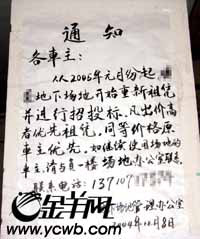 通知
各車主：
从2005年元月份起
地下场地开始重新租凭
并进行招投标，凡出价高
者优先租凭，同等价格原
車主优先。如继续使用场地的
車主，请与负一楼场地办公室联系。
联系电话：137107
场地管理办公室
2004年12月8日
金羊网
www.ycwb.com